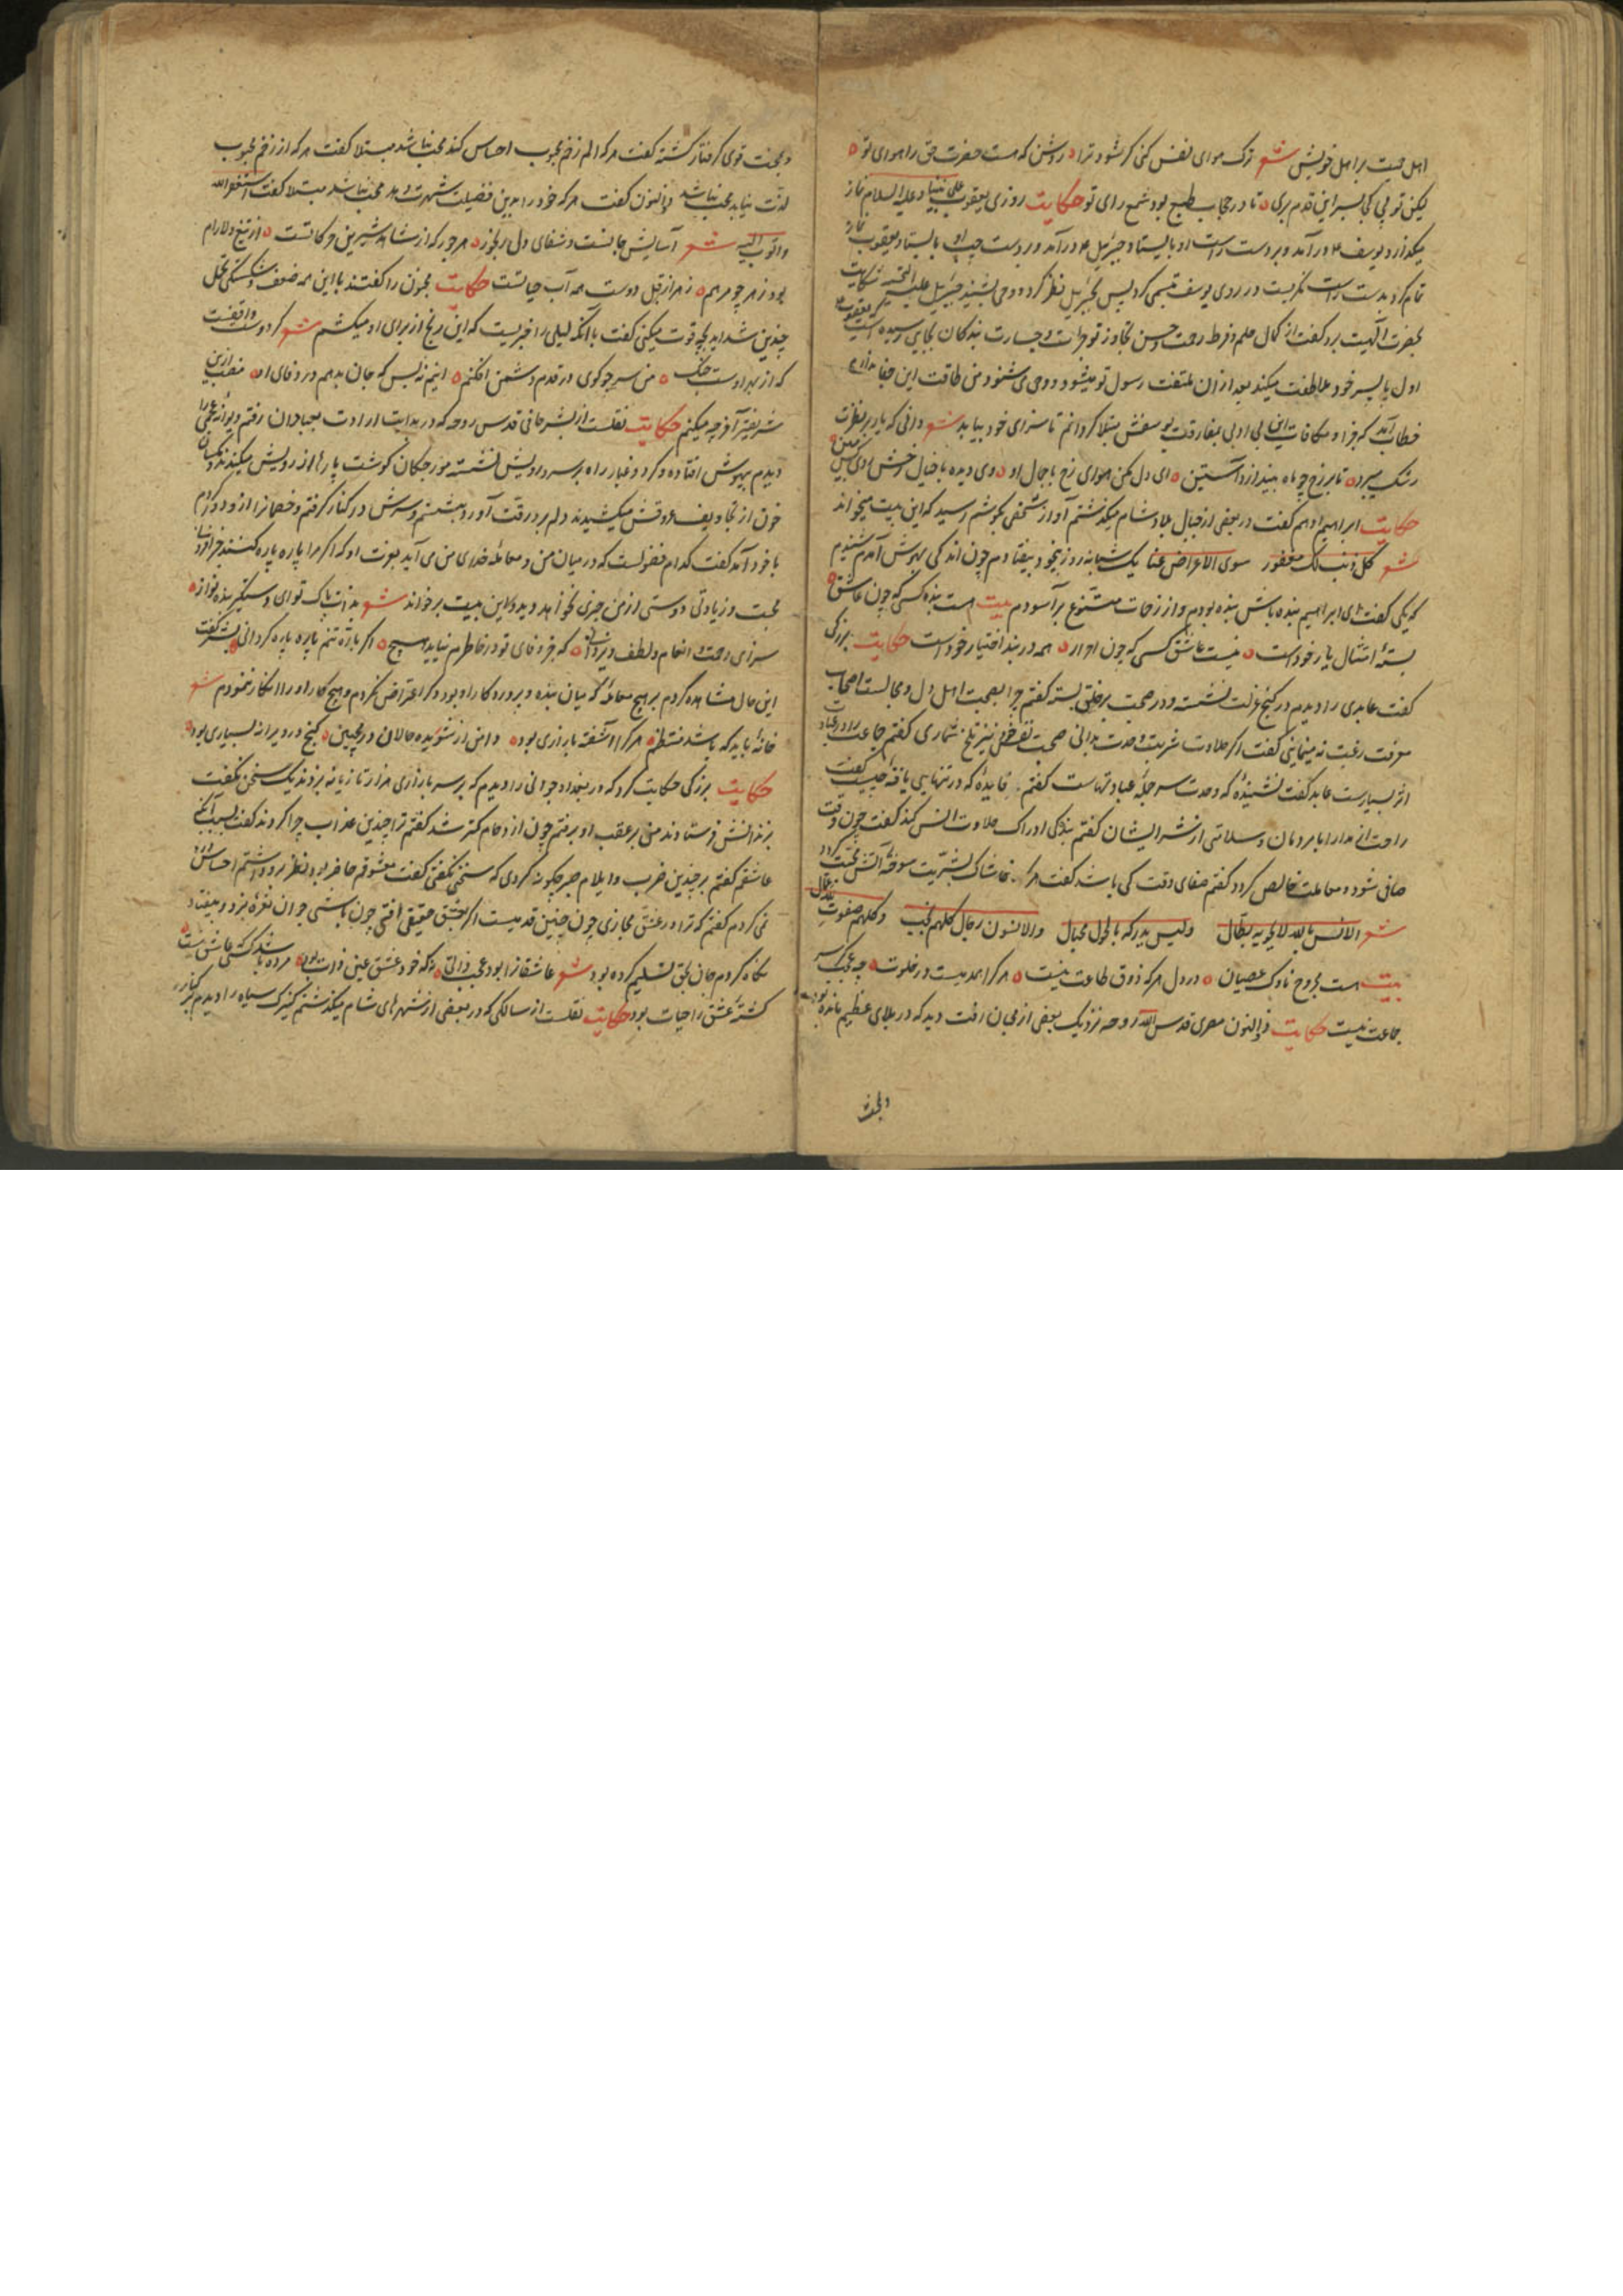 اهل محبت بر اهل خویش شعر ترک هوای نفس کنی گر شود ترا روشن که هست حضرت حق را هوای تو
لیکن تو پی کجا بسر این قدم بری تا در حجاب طبع بود شمع رای تو حکایت روزی یعقوب علی نبینا و علیه السلام نماز
میگذارد یوسف ع درآمد و بر دست راست او بایستاد جبرئیل ع درآمد و بر دست چپ او بایستاد یعقوب نماز
تمام کرد بدست راست نگریست در روی یوسف تبسمی کرد پس بجبرئیل نظر کرد و وحی بشنید جبرئیل علیه التحیه شکایت
بحضرت الهیت برد گفت از کمال حلم و فرط رحمت و حسن تجاوز تو جرأت و جسارت بندگان بجایی رسیده است که یعقوب
اول با پسر خود ملاطفت میکند بعد از آن ملتفت رسول تو میشود و وحی می شنود من طاقت این جفا ندارم
خطاب آمد که جزا و مکافات این بی ادبی بمفارقت یوسفش مبتلا گردانم تا سزای خود بیابد شعر دانی که یار بر نظرت
رشک میبرد تا بر رخ چو ماه نیندازد آستین ای دل مکن هوای رخ با جمال او وی دیده با خیال رخش
حکایت ابراهیم ادهم گفت در بعضی از جبال بلاد شام میگذشتم آواز شخصی بگوشم رسید که این بیت میخواند
شعر کل ذنب لک مغفور سوی الاعراض عنا یک شبانه روز بیخود بیفتادم چون اندکی بهوش آمدم شنیدم
که یکی گفت ای ابراهیم بنده باش بنده بودم و از زحمات متنوع برآسودم بیت هست بنده کسی که چون عاشق
بستۀ امتثال یار خود است نیست عاشق کسی که چون احرار همه در بند اختیار خود است حکایت بزرگی
گفت عابدی را دیدم در کنج عزلت نشسته و در صحبت بر خلق بسته گفتم چرا بصحبت اهل دل و مجالست اصحاب
معرفت رغبت نه مینمایی گفت اگر حلاوت شربت وحدت بدانی صحبت نفس خود نیز تلخ شماری گفتم جماعت را در عبادت
اثر بسیارست عابد گفت نشنیدۀ که وحدت سر جملۀ عبادتهاست گفتم فایدۀ که در تنهایی یافتۀ چیست گفت
راحت از مدارا با مردمان و سلامتی از شر ایشان گفتم بنده کی ادراک حلاوت انس کند گفت چون وقت
صافی شود و معاملت خالص گردد گفتم صفای وقت کی باشد گفت هرگاه خاشاک بشریت سوختۀ آتش محبت گردد
شعر الانس بالله لا یحویه بطال ولیس یدرکه بالحول محتال والآنسون رجال کلهم نجب وکلهم صفوت لله عمال
بیت هست مجروح ناوک عصیان در دل هر که ذوق طاعت نیست هر کرا همدمیست در خلوت چه عجب گر سر
جماعت نیست حکایت ذوالنون مصری قدس الله روحه نزدیک بعضی از محبان رفت دید که در بلای عظیم مانده بود
وبمحنت
وبمحنت قوی گرفتار گشته گفت هر که الم زخم محبوب احساس کند محب نباشد مبتلا گفت هر که از زخم محبوب
لذت نیابد محب نباشد ذوالنون گفت هر که خود را بدین فضیلت شهرت دهد محب نباشد مبتلا گفت استغفرالله
واتوب الیه شعر آسایش جانست و شفای دل رنجور هر جور که از شاهد شیرین حرکاتست از تیغ دلارام
بود زهر چو مرهم زهر از قبل دوست همه آب حیاتست حکایت مجنون را گفتند با این همه ضعف و شکستگی تحمل
چندین شداید بچه قوت میکنی گفت با آنکه لیلی را خبریست که این رنج از برای او میکشم شعر گر دوست واقفست
که از بهر اوست جنگ من سر چو گوی در قدم دشمن افکنم اینم نه بس که جان بدهم در وفای او منصب ازین
شریفتر آخر چه میکنم حکایت نقلست از بشر حافی قدس روحه که در بدایت ارادت بعبادان رفتم دیوانه را
دیدم بیهوش افتاده و گرد و غبار راه بر سر و رویش نشسته مورچگان گوشت پارها از رویش میکندند و مگسان
خون از تجاویف عروقش میکشیدند دلم بر درقت آورد بنشستم و سرش در کنار گرفتم و خصمانرا از و دور کردم
با خود آمد گفت کدام فضولست که در میان من و معاملۀ خدای من می آید بعزت او که اگر مرا پاره پاره کنند جز از
محبت و زیادتی دوستی از من چیزی نخواهد دید و این بیت برخواند شعر بذات پاک تو ای دستگیر بنده نواز
سزای رحمت و انعام و لطف و یزدانی که جز وفای تو در خاطرم نیاید هیچ اگر باره تنم پاره پاره گردانی بشر گفت
این حال مشاهده کردم بر هیچ معاملۀ که میان بنده و پروردگار او بود دگر اعتراض نکردم و هیچ کار او را انکار ننمودم شعر
خانۀ باید که باشد منتظم هر کرا آشفته بازاری بود دامن از شوریده حالان در مچین گنج در ویرانه بسیاری بود
حکایت بزرگی حکایت کرد که در بغداد جوانی را دیدم که بر سر بازاری هزار تازیانه بزدند یک سخن نگفت
بزندانش فرستادند من بر عقب او برفتم چون ازدحام کمتر شد گفتم ترا چندین عذاب چرا کردند گفت بسبب آنکه
عاشقم گفتم بر چندین ضرب و ایلام صبر چگونه کردی که سخنی نگفتی گفت معشوقم حاضر بود نظر برو داشتم احساس
نمی کردم گفتم که ترا در عشق مجازی چون چنین قدمیست اگر بعشق حقیقی افتی چون باشی جوان نعرۀ بزد و بیفتاد
نگاه کردم جان بحق تسلیم کرده بود شعر عاشقانرا بود عجب ذاتی زانکه خود عشق عین ذات بود مرده باشد کسی که عاشق نیست
کشتۀ عشق را حیات بود حکایت نقلست از سالکی که در بعضی از شهرهای شام میگذشتم کنیزک سیاه را دیدم بر کنار